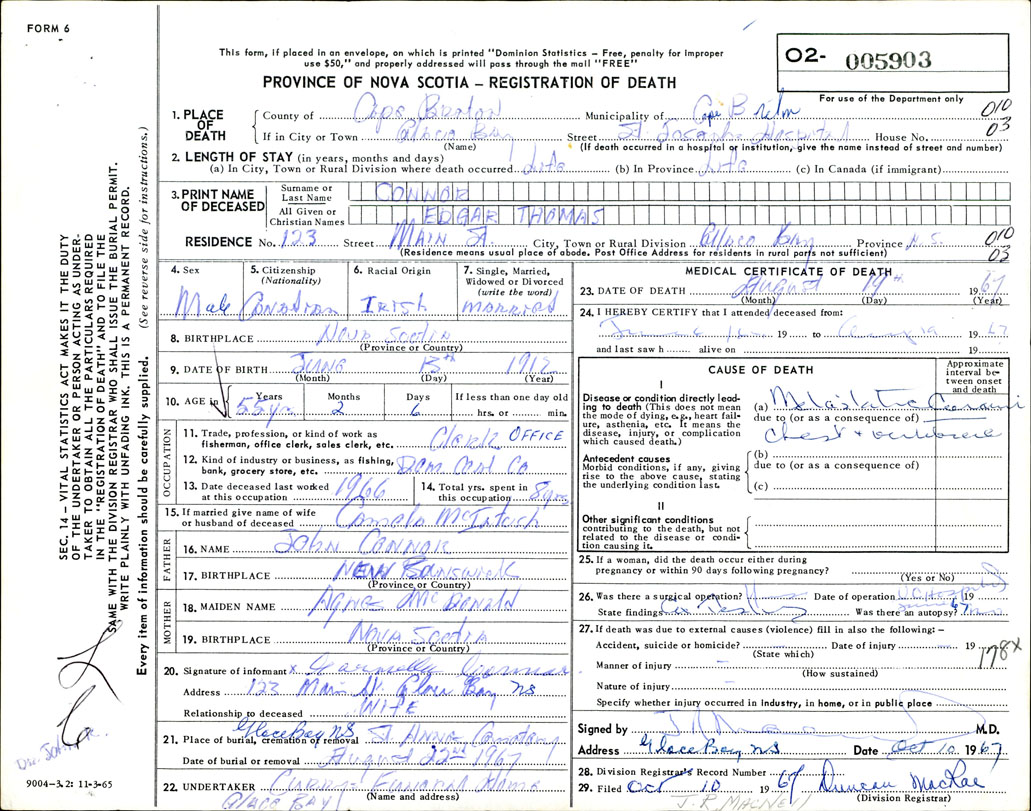 FORM 6
This form, if placed in an envelope, on which is printed "Dominion Statistics – Free, penalty for improper
use $50," and properly addressed will pass through the mail "FREE"
PROVINCE OF NOVA SCOTIA – REGISTRATION OF DEATH
O2- 005903
For use of the Department only
1. PLACE OF DEATH
County of Cape Breton Municipality of Cape Breton 010
If in City or Town Glace Bay Street St. Josephs Hospital House No. 03
(Name) (If death occurred in a hospital or institution, give the name instead of street and number)
2. LENGTH OF STAY (in years, months and days)
(a) In City, Town or Rural Division where death occurred Life (b) In Province Life (c) In Canada (if immigrant)
3. PRINT NAME OF DECEASED
Surname or Last Name CONNOR
All Given or Christian Names EDGAR THOMAS
RESIDENCE No. 123 Street MAIN ST. City, Town or Rural Division Glace Bay Province N.S. 010
(Residence means usual place of abode. Post Office Address for residents in rural parts not sufficient) 03
4. Sex Male
5. Citizenship (Nationality) Canadian
6. Racial Origin IRISH
7. Single, Married, Widowed or Divorced (write the word) MARRIED
8. BIRTHPLACE Nova Scotia
(Province or Country)
9. DATE OF BIRTH June 13th 1912
(Month) (Day) (Year)
10. AGE in Years 55 yrs Months 2 Days 6 If less than one day old hrs. or min.
OCCUPATION
11. Trade, profession, or kind of work as fisherman, office clerk, sales clerk, etc. Clerk OFFICE
12. Kind of industry or business, as fishing, bank, grocery store, etc. Dom Coal Co
13. Date deceased last worked at this occupation 1966
14. Total yrs. spent in this occupation 8 yrs
15. If married give name of wife or husband of deceased McIntosh
FATHER
16. NAME John Connor
17. BIRTHPLACE NEW Brunswick
(Province or Country)
MOTHER
18. MAIDEN NAME Agnes McDonald
19. BIRTHPLACE Nova Scotia
(Province or Country)
20. Signature of informant x
Address 123 Main St. Glace Bay NS
Relationship to deceased WIFE
21. Place of burial, cremation or removal Glace Bay N.S. St Anns Cemetery
Date of burial or removal August 22nd 1967
22. UNDERTAKER Curry's Funeral Home
GLACE BAY (Name and address)
MEDICAL CERTIFICATE OF DEATH
23. DATE OF DEATH August 19th 1967
(Month) (Day) (Year)
24. I HEREBY CERTIFY that I attended deceased from:
19 to Aug 19 1967
and last saw h alive on 19
CAUSE OF DEATH
Approximate interval between onset and death
I
Disease or condition directly leading to death (This does not mean the mode of dying, e.g., heart failure, asthenia, etc. It means the disease, injury, or complication which caused death.)
(a) Metastatic
due to (or as a consequence of)
Chest + vertebrae
Antecedent causes
Morbid conditions, if any, giving rise to the above cause, stating the underlying condition last.
(b)
due to (or as a consequence of)
(c)
II
Other significant conditions contributing to the death, but not related to the disease or condition causing it.
25. If a woman, did the death occur either during pregnancy or within 90 days following pregnancy?
(Yes or No)
26. Was there a surgical operation? Date of operation 19 67
State findings Was there an autopsy?
27. If death was due to external causes (violence) fill in also the following: –
Accident, suicide or homicide? Date of injury 19
(State which) 178X
Manner of injury
(How sustained)
Nature of injury
Specify whether injury occurred in industry, in home, or in public place
Signed by M.D.
Address Glace Bay NS Date Oct 10 1967
28. Division Registrar's Record Number
29. Filed Oct 10 1967 Duncan MacRae
(Division Registrar)
SEC. 14 – VITAL STATISTICS ACT MAKES IT THE DUTY
OF THE UNDERTAKER OR PERSON ACTING AS UNDER-
TAKER TO OBTAIN ALL THE PARTICULARS REQUIRED
IN THE "REGISTRATION OF DEATH" AND TO FILE THE
SAME WITH THE DIVISION REGISTRAR WHO SHALL ISSUE THE BURIAL PERMIT.
WRITE PLAINLY WITH UNFADING INK. THIS IS A PERMANENT RECORD.
Every item of information should be carefully supplied. (See reverse side for instructions.)
9004-3.2: 11-3-65